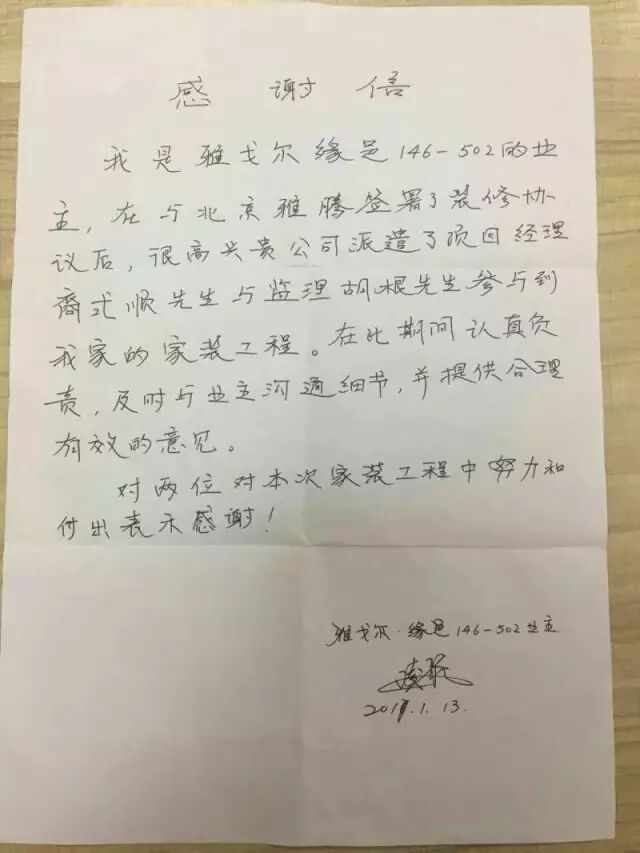 感谢信
我是雅戈尔缘邑146-502的业
主，在与北京雅腾签署了装修协
议后，很高兴贵公司派遣了项目经理
裔式顺先生与监理胡根先生参与到
我家的家装工程。在此期间认真负
责，及时与业主沟通细节，并提供合理
有效的意见。
对两位对本次家装工程中努力和
付出表示感谢！
雅戈尔·缘邑146-502业主
1.13.